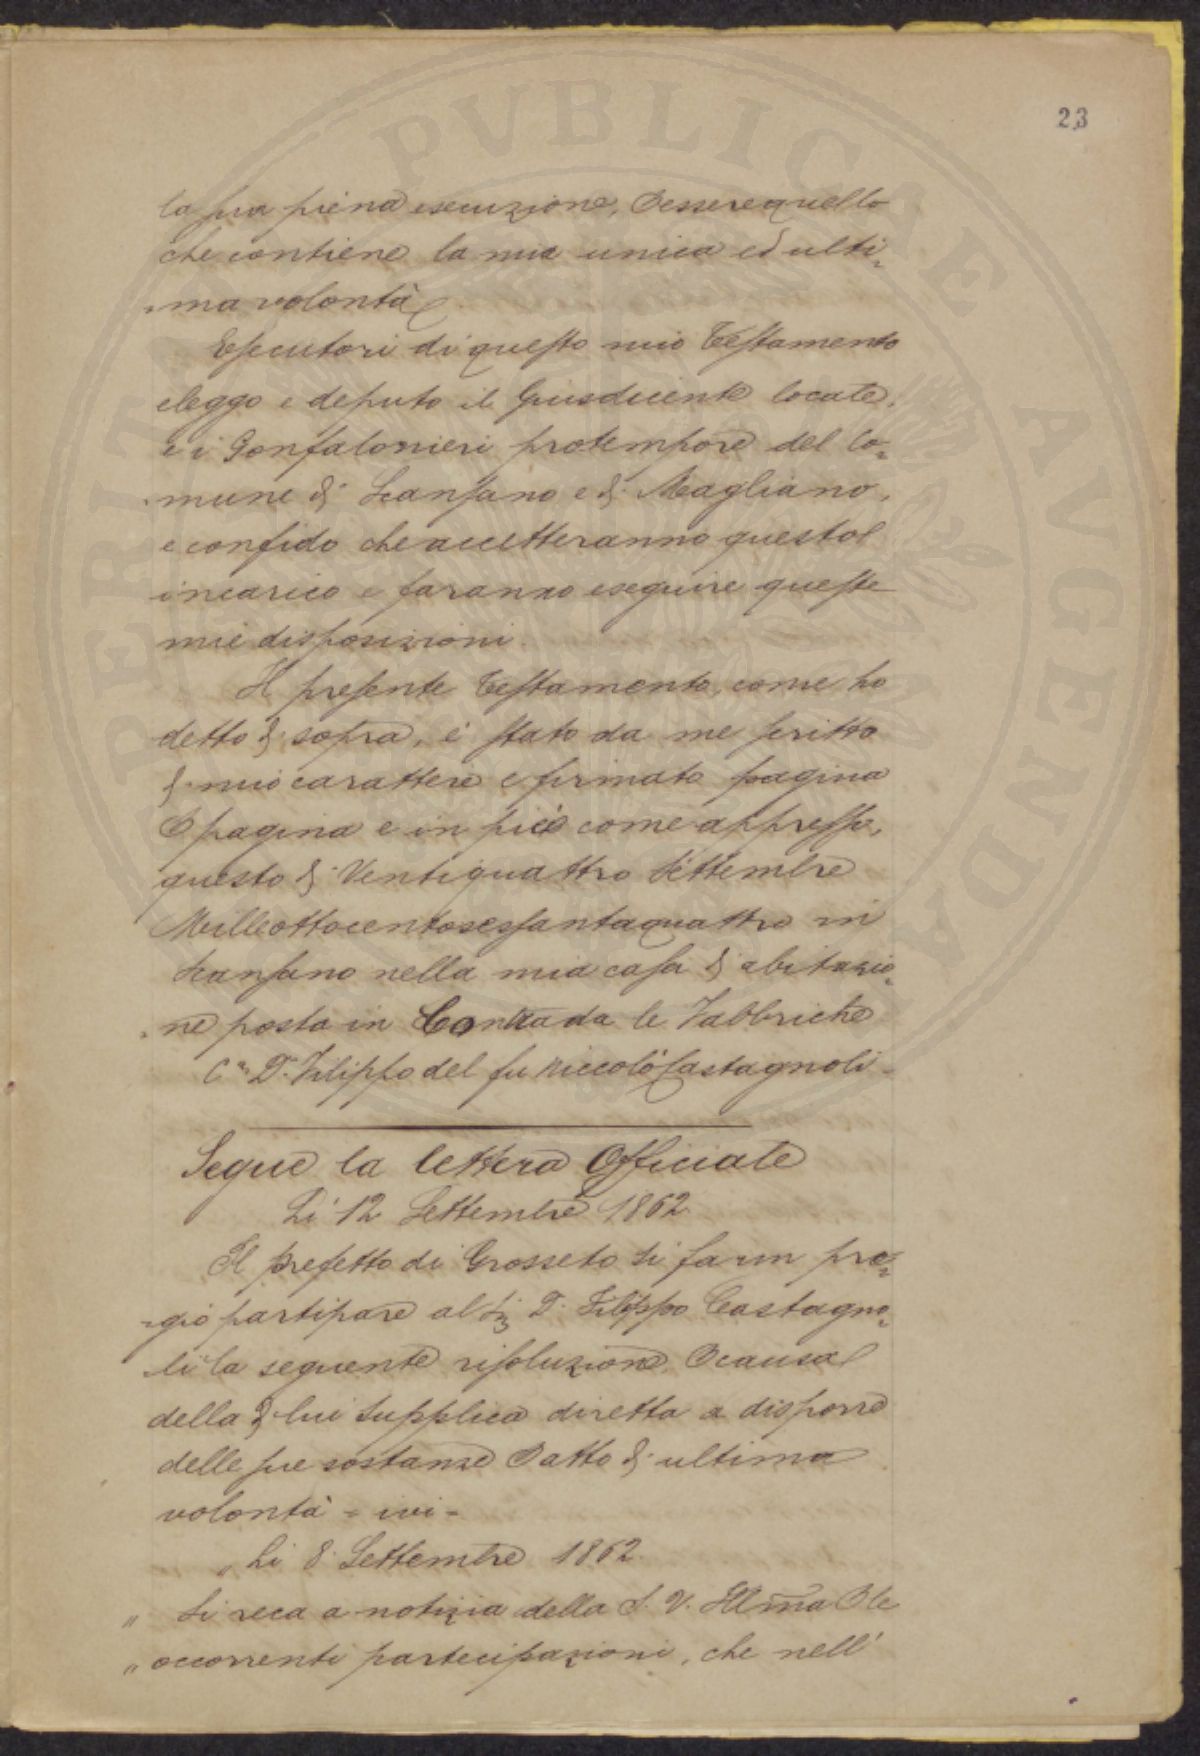 23
la sua piena esecuzione, per essere quello
che contiene la mia unica ed ulti=
=ma volontà
Esecutori di questo mio Testamento
eleggo e deputo il Giusdicente locale,
e i Gonfalonieri protempore del Co=
=mune di Scansano e di Magliano,
e confido che accetteranno questo
incarico e faranno eseguire queste
mie disposizioni.
Il presente Testamento, come ho
detto di sopra, è stato da me scritto
di mio carattere e firmato pagina
per pagina e in piè come appresso,
questo dì Ventiquattro Settembre
Milleottocentosessantaquattro in
Scansano nella mia casa di abitazio=
=ne posta in Contrada le Fabbriche
C.re D.r Filippo del fu Niccolò Castagnoli =
Segue la lettera Officiale
Li 12 Settembre 1862
Il prefetto di Grosseto si fa un pre=
=gio partipare al Sig. D. Filippo Castagno=
=li la seguente risoluzione per causa
della di lui supplica diretta a disporre
delle sue sostanze per atto di ultima
volontà = ivi =
„ Li 8 Settembre 1862
„ Si reca a notizia della S. V. Illma per le
„ occorrenti partecipazioni, che nell'
PERITATI PVBLICAE AVGENDAE